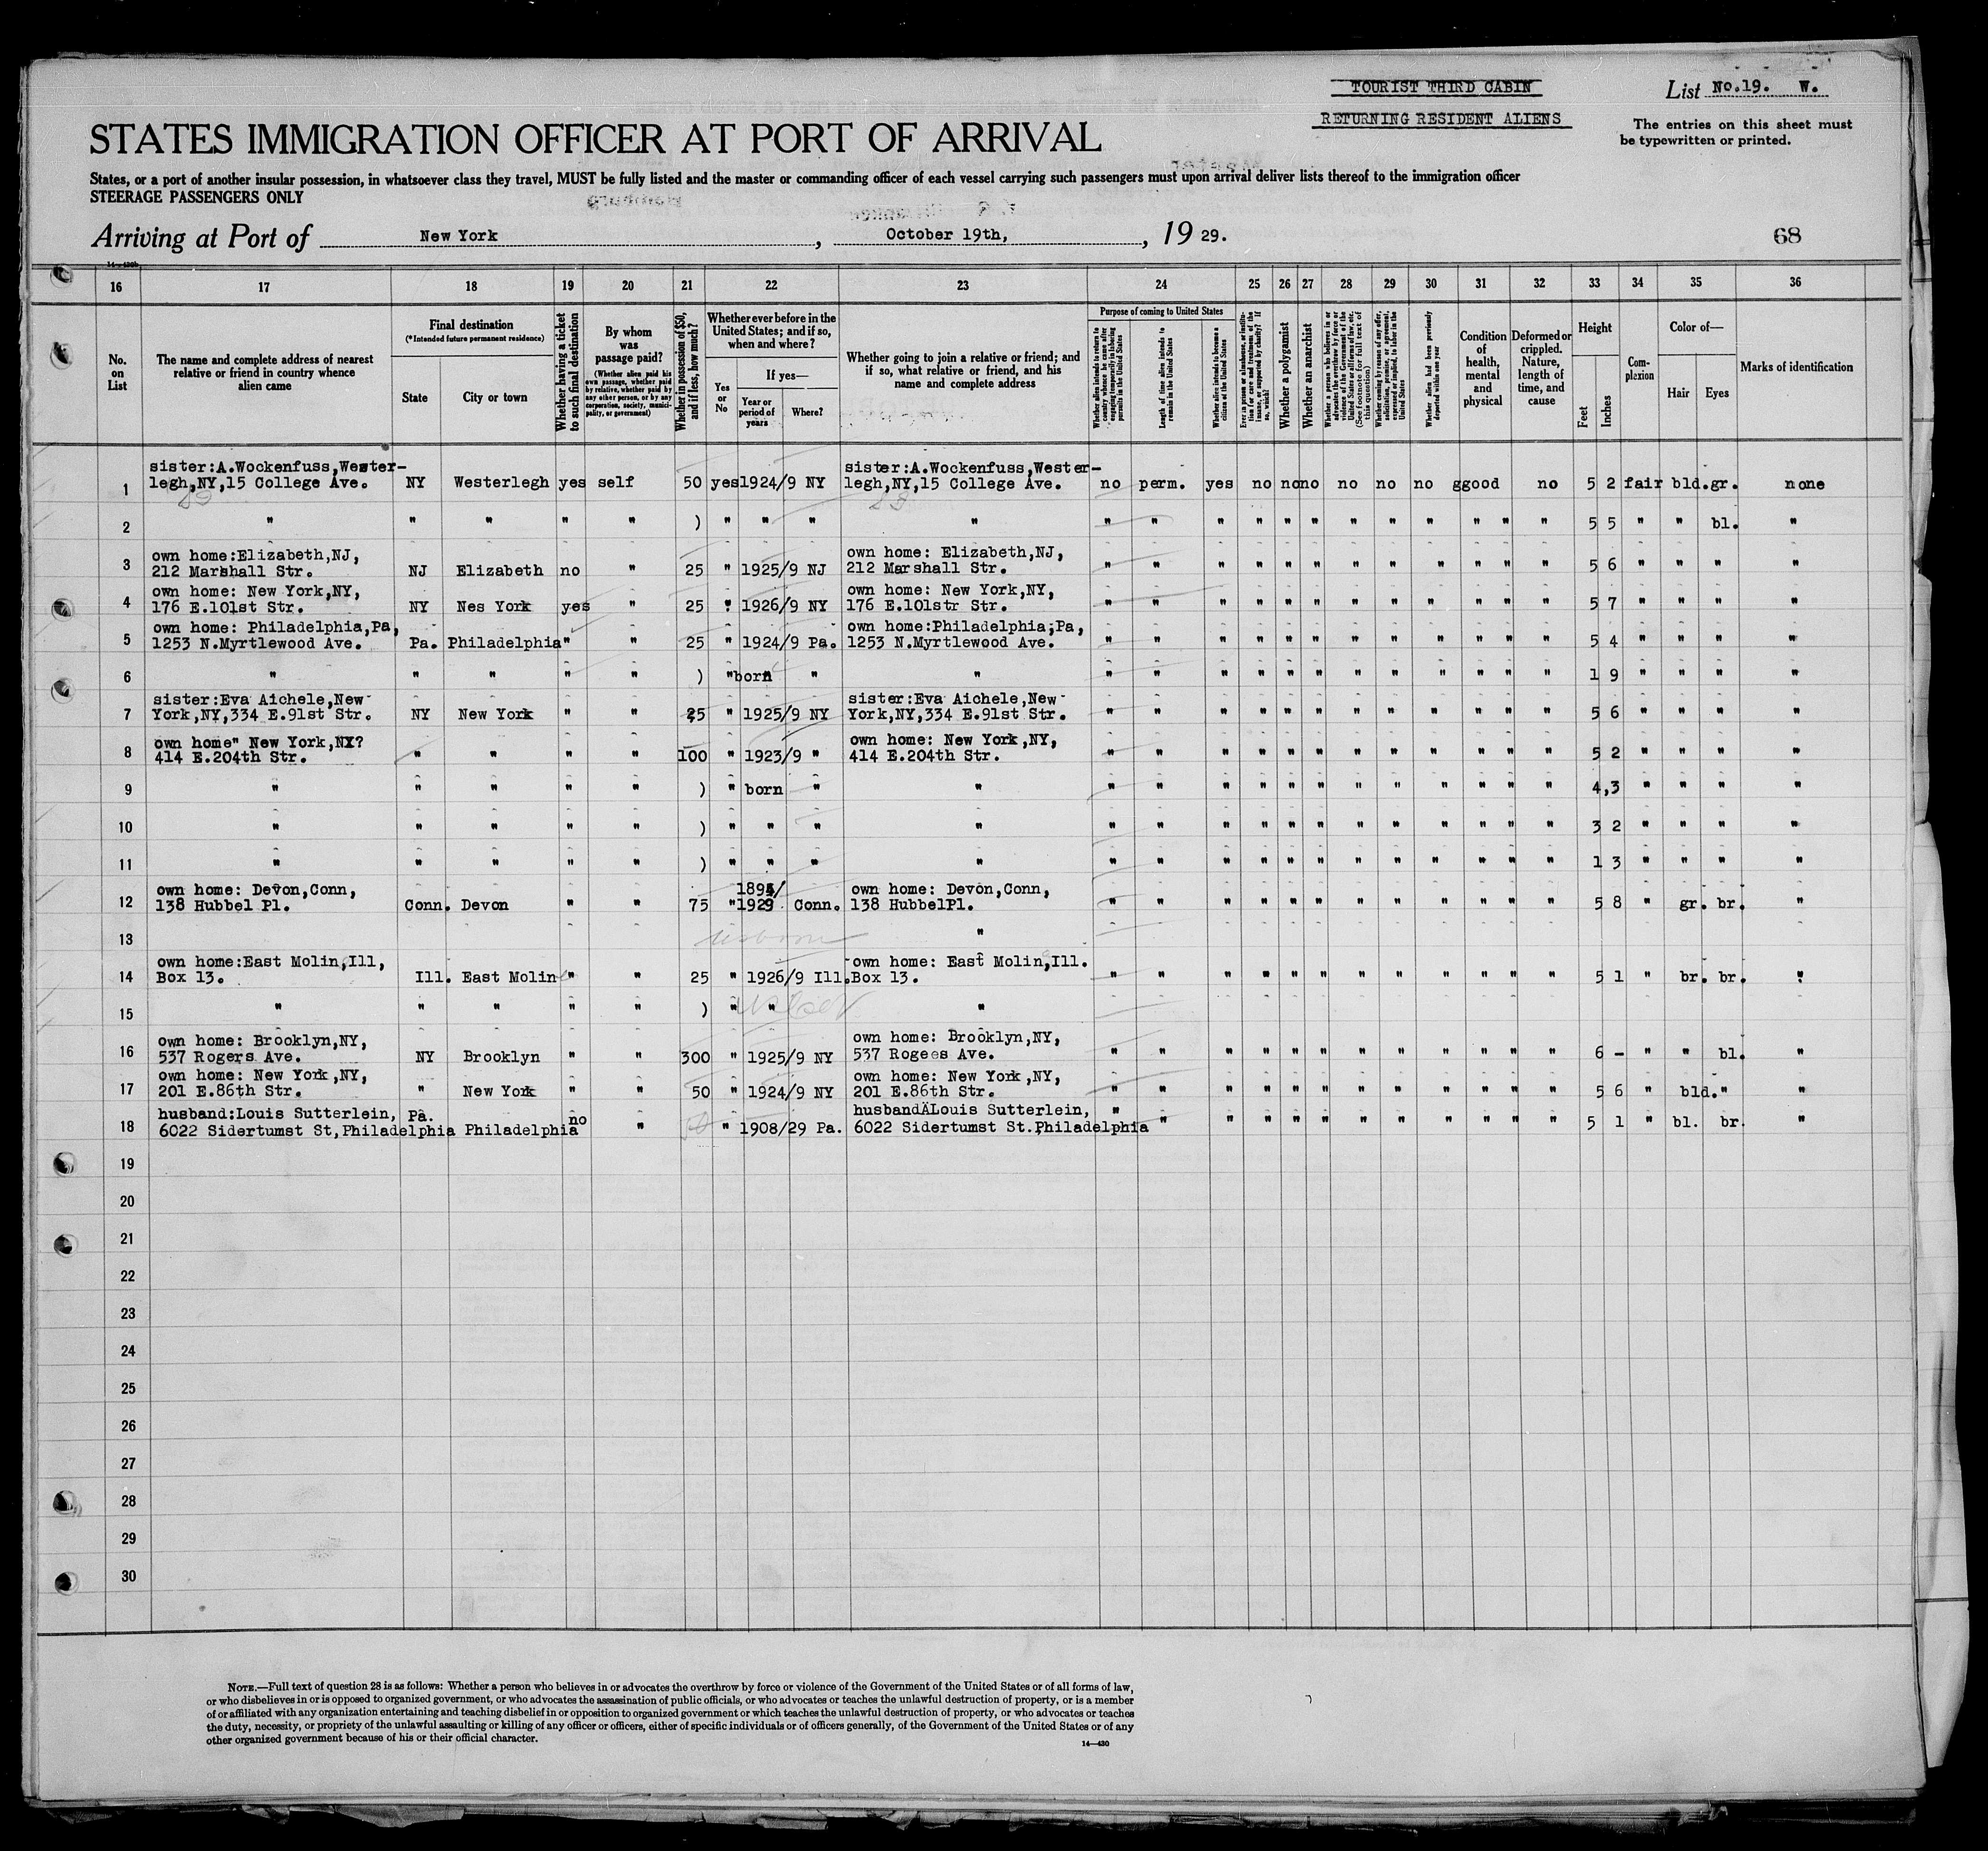 TOURIST THIRD CABIN
List No.19. W.
RETURNING RESIDENT ALIENS
The entries on this sheet must
be typewritten or printed.
STATES IMMIGRATION OFFICER AT PORT OF ARRIVAL
States, or a port of another insular possession, in whatsoever class they travel, MUST be fully listed and the master or commanding officer of each vessel carrying such passengers must upon arrival deliver lists thereof to the immigration officer
STEERAGE PASSENGERS ONLY
Arriving at Port of New York, October 19th, 1929.
68
16 17 18 19 20 21 22 23 24 25 26 27 28 29 30 31 32 33 34 35 36
No. on List
The name and complete address of nearest relative or friend in country whence alien came
Final destination
(*Intended future permanent residence)
State
City or town
Whether having a ticket to such final destination
By whom was passage paid?
(Whether alien paid his own passage, whether paid by relative, whether paid by any other person, or by any corporation, society, municipality, or government)
Whether in possession of $50, and if less, how much?
Whether ever before in the United States; and if so, when and where?
Yes or No
If yes—
Year or period of years
Where?
Whether going to join a relative or friend; and if so, what relative or friend, and his name and complete address
Purpose of coming to United States
Whether alien intends to return to country whence he came after engaging temporarily in laboring pursuits in the United States
Length of time alien intends to remain in the United States
Whether alien intends to become a citizen of the United States
Ever in prison or almshouse, or institution for care and treatment of the insane, or supported by charity? If so, which?
Whether a polygamist
Whether an anarchist
Whether a person who believes in or advocates the overthrow by force or violence of the Government of the United States or all forms of law, etc. (See footnote for full text of this question)
Whether coming by reason of any offer, solicitation, promise, or agreement, expressed or implied, to labor in the United States
Whether alien had been previously deported within one year
Condition of health, mental and physical
Deformed or crippled. Nature, length of time, and cause
Height
Feet
Inches
Complexion
Color of—
Hair
Eyes
Marks of identification
1 sister:A.Wockenfuss,Wester-
legh,NY,15 College Ave. NY Westerlegh yes self 50 yes 1924/9 NY sister:A.Wockenfuss,Wester-
legh,NY,15 College Ave. no perm. yes no no no no no no ggood no 5 2 fair bld. gr. none
2 " " " " " ) " " " " " " " " " " " " " " " " 5 5 " " bl. "
3 own home:Elizabeth,NJ,
212 Marshall Str. NJ Elizabeth no " 25 " 1925/9 NJ own home: Elizabeth,NJ,
212 Marshall Str. " " " " " " " " " " " " 5 6 " " " "
4 own home: New York,NY,
176 E.101st Str. NY Nes York yes " 25 " 1926/9 NY own home: New York,NY,
176 E.101str Str. " " " " " " " " " " " " 5 7 " " " "
5 own home: Philadelphia,Pa,
1253 N.Myrtlewood Ave. Pa. Philadelphia " " 25 " 1924/9 Pa. own home:Philadelphia;Pa,
1253 N.Myrtlewood Ave. " " " " " " " " " " " " 5 4 " " " "
6 " " " " " ) " born " " " " " " " " " " " " " " 1 9 " " " "
7 sister:Eva Aichele,New
York,NY,334 E.91st Str. NY New York " " 25 " 1925/9 NY sister:Eva Aichele,New
York,NY,334 E.91st Str. " " " " " " " " " " " " 5 6 " " " "
8 own home" New York,NY?
414 E.204th Str. " " " " 100 " 1923/9 " own home: New York,NY,
414 E.204th Str. " " " " " " " " " " " " 5 2 " " " "
9 " " " " " ) " born " " " " " " " " " " " " " " 4,3 " " " "
10 " " " " " ) " " " " " " " " " " " " " " " " 3 2 " " " "
11 " " " " " ) " " " " " " " " " " " " " " " " 1 3 " " " "
12 own home: Devon,Conn,
138 Hubbel Pl. Conn. Devon " " 75 " 1894/
1929 Conn. own home: Devon,Conn,
138 HubbelPl. " " " " " " " " " " " " 5 8 " gr. br. "
13 "
14 own home:East Molin,Ill,
Box 13. Ill. East Molin " " 25 " 1926/9 Ill. own home: East Molin,Ill.
Box 13. " " " " " " " " " " " " 5 1 " br. br. "
15 " " " " " ) " " "
16 own home: Brooklyn,NY,
537 Rogers Ave. NY Brooklyn " " 300 " 1925/9 NY own home: Brooklyn,NY,
537 Rogees Ave. " " " " " " " " " " " " 6 - " " bl. "
17 own home: New York,NY,
201 E.86th Str. " New York " " 50 " 1924/9 NY own home: New York,NY,
201 E.86th Str. " " " " " " " " " " " " 5 6 " bld. " "
18 husband:Louis Sutterlein,
6022 Sidertumst St,Philadelphia Pa. Philadelphia no " " 1908/29 Pa. husbandÄLouis Sutterlein,
6022 Sidertumst St.Philadelphia " " " " " " " " " " " " 5 1 " bl. br. "
19
20
21
22
23
24
25
26
27
28
29
30
NOTE.—Full text of question 28 is as follows: Whether a person who believes in or advocates the overthrow by force or violence of the Government of the United States or of all forms of law,
or who disbelieves in or is opposed to organized government, or who advocates the assassination of public officials, or who advocates or teaches the unlawful destruction of property, or is a member
of or affiliated with any organization entertaining and teaching disbelief in or opposition to organized government or which teaches the unlawful destruction of property, or who advocates or teaches
the duty, necessity, or propriety of the unlawful assaulting or killing of any officer or officers, either of specific individuals or of officers generally, of the Government of the United States or of any
other organized government because of his or their official character.
14—430